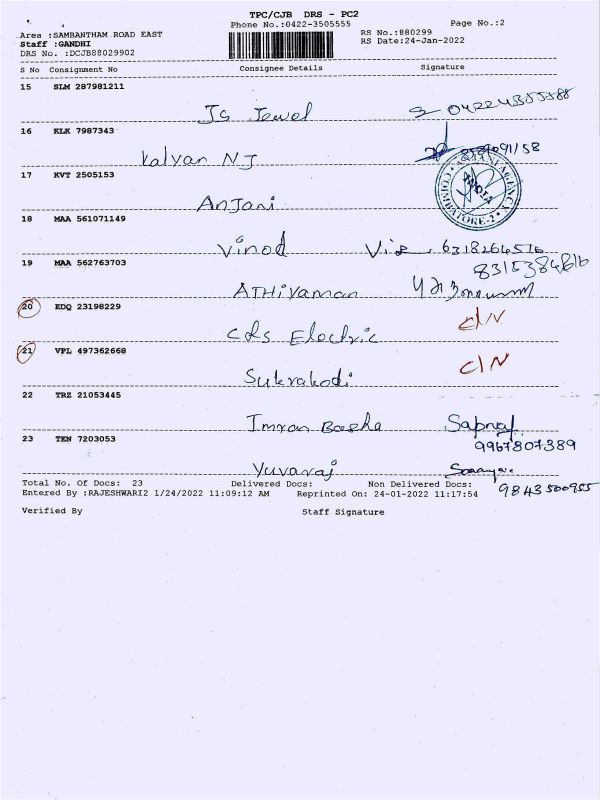 TPC/CJB DRS - PC2
Phone No.:0422-3505555
Page No.:2
Area :SAMBANTHAM ROAD EAST
RS No.:880299
Staff :GANDHI
RS Date:24-Jan-2022
DRS No. :DCJB88029902
S No Consignment No Consignee Details Signature
15 SLM 287981211
JS Jewel
16 KLK 7987343
Kalyan NJ
17 KVT 2505153
Anjani
COIMBATORE-2
18 MAA 561071149
Vinod
6318264516
19 MAA 562763703
8315384616
ATHiyaman
20 EDQ 23198229
C/N
Electric
21 VPL 497362668
C/N
22 TRZ 21053445
Imran Basha
23 TEN 7203053
9967807389
Yuvaraj
Total No. Of Docs: 23 Delivered Docs: Non Delivered Docs:
Entered By :RAJESHWARI2 1/24/2022 11:09:12 AM Reprinted On: 24-01-2022 11:17:54
9843500955
Verified By Staff Signature